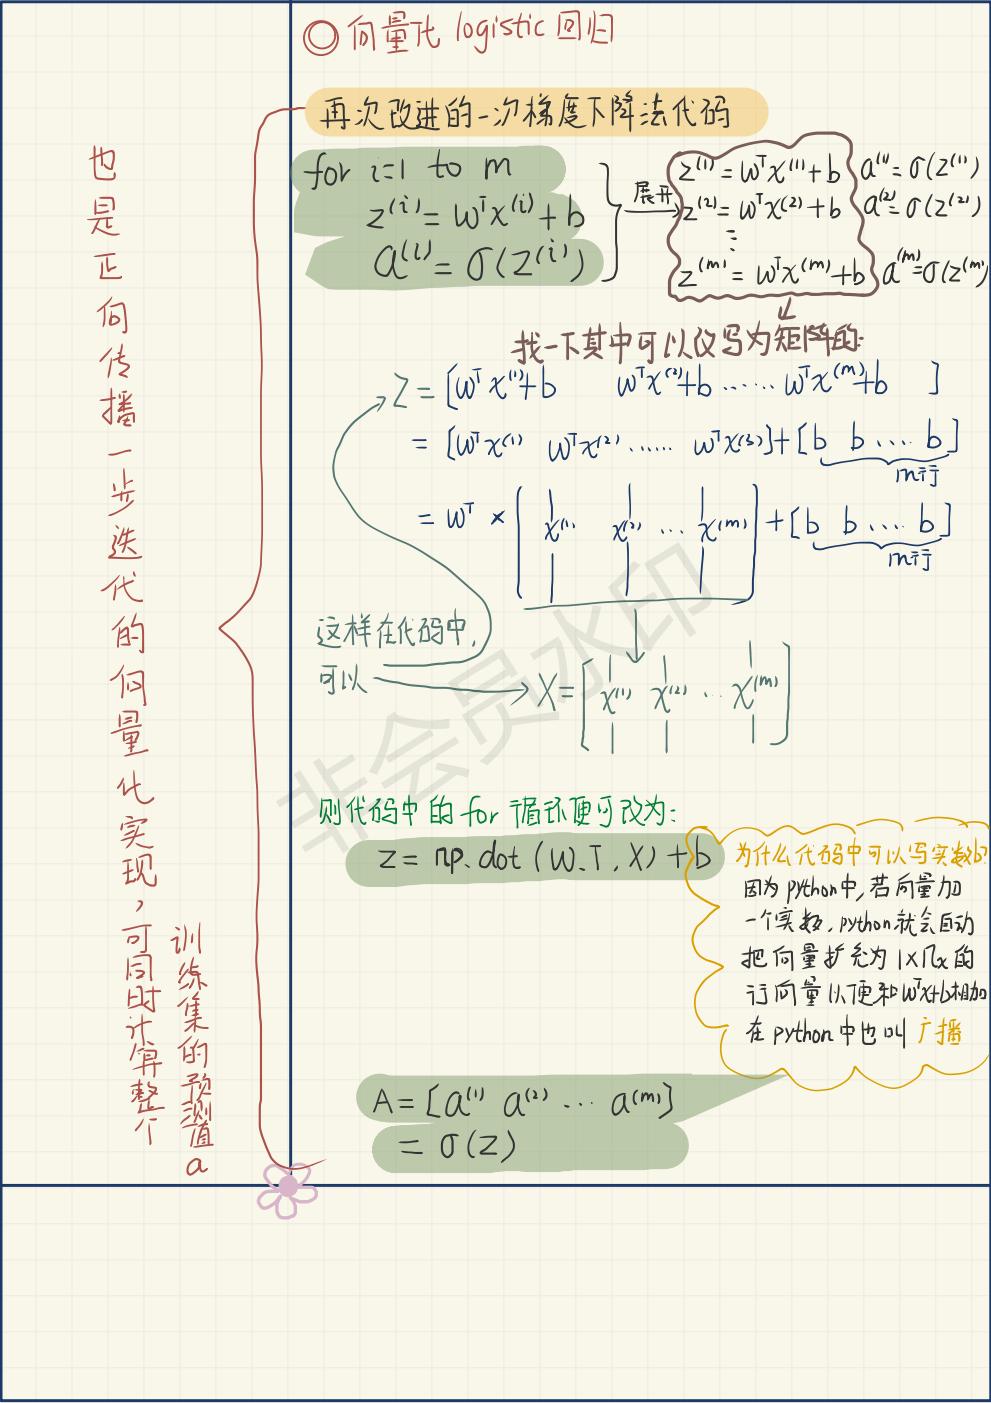 ◎ 向量化 logistic 回归
再次改进的一次梯度下降法代码
for i=1 to m
z⁽ⁱ⁾=wᵀx⁽ⁱ⁾+b
a⁽ⁱ⁾=σ(z⁽ⁱ⁾)
展开
z⁽¹⁾=wᵀx⁽¹⁾+b a⁽¹⁾=σ(z⁽¹⁾)
z⁽²⁾=wᵀx⁽²⁾+b a⁽²⁾=σ(z⁽²⁾)
⋮
z⁽ᵐ⁾=wᵀx⁽ᵐ⁾+b a⁽ᵐ⁾=σ(z⁽ᵐ⁾)
找一下其中可以改写为矩阵的:
Z=[wᵀx⁽¹⁾+b wᵀx⁽²⁾+b ...... wᵀx⁽ᵐ⁾+b ]
=[wᵀx⁽¹⁾ wᵀx⁽²⁾ ...... wᵀx⁽³⁾]+[b b .... b]
m行
=wᵀ × [x⁽¹⁾ x⁽²⁾ ... x⁽ᵐ⁾] +[b b .... b]
m行
这样在代码中,
可以
X=[x⁽¹⁾ x⁽²⁾ ... x⁽ᵐ⁾]
则代码中的 for 循环便可改为:
z=np.dot(w.T, X)+b
为什么代码中可以写实数b?
因为python中,若向量加
一个实数,python就会自动
把向量扩充为1×nₓ的
行向量以便和wᵀx+b相加
在python中也叫广播
A=[a⁽¹⁾ a⁽²⁾ ... a⁽ᵐ⁾]
=σ(Z)
也是正向传播一步迭代的向量化实现,可同时计算整个
训练集的预测值a
非会员水印